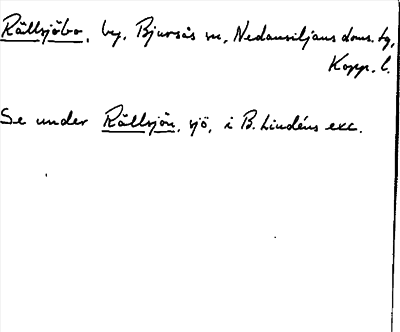 Rällsjöbo, by, Bjursås sn, Nedansiljans doms. tg,
Kopp. l.
Se under Rällsjön, sjö, i B. Lindéns exc.